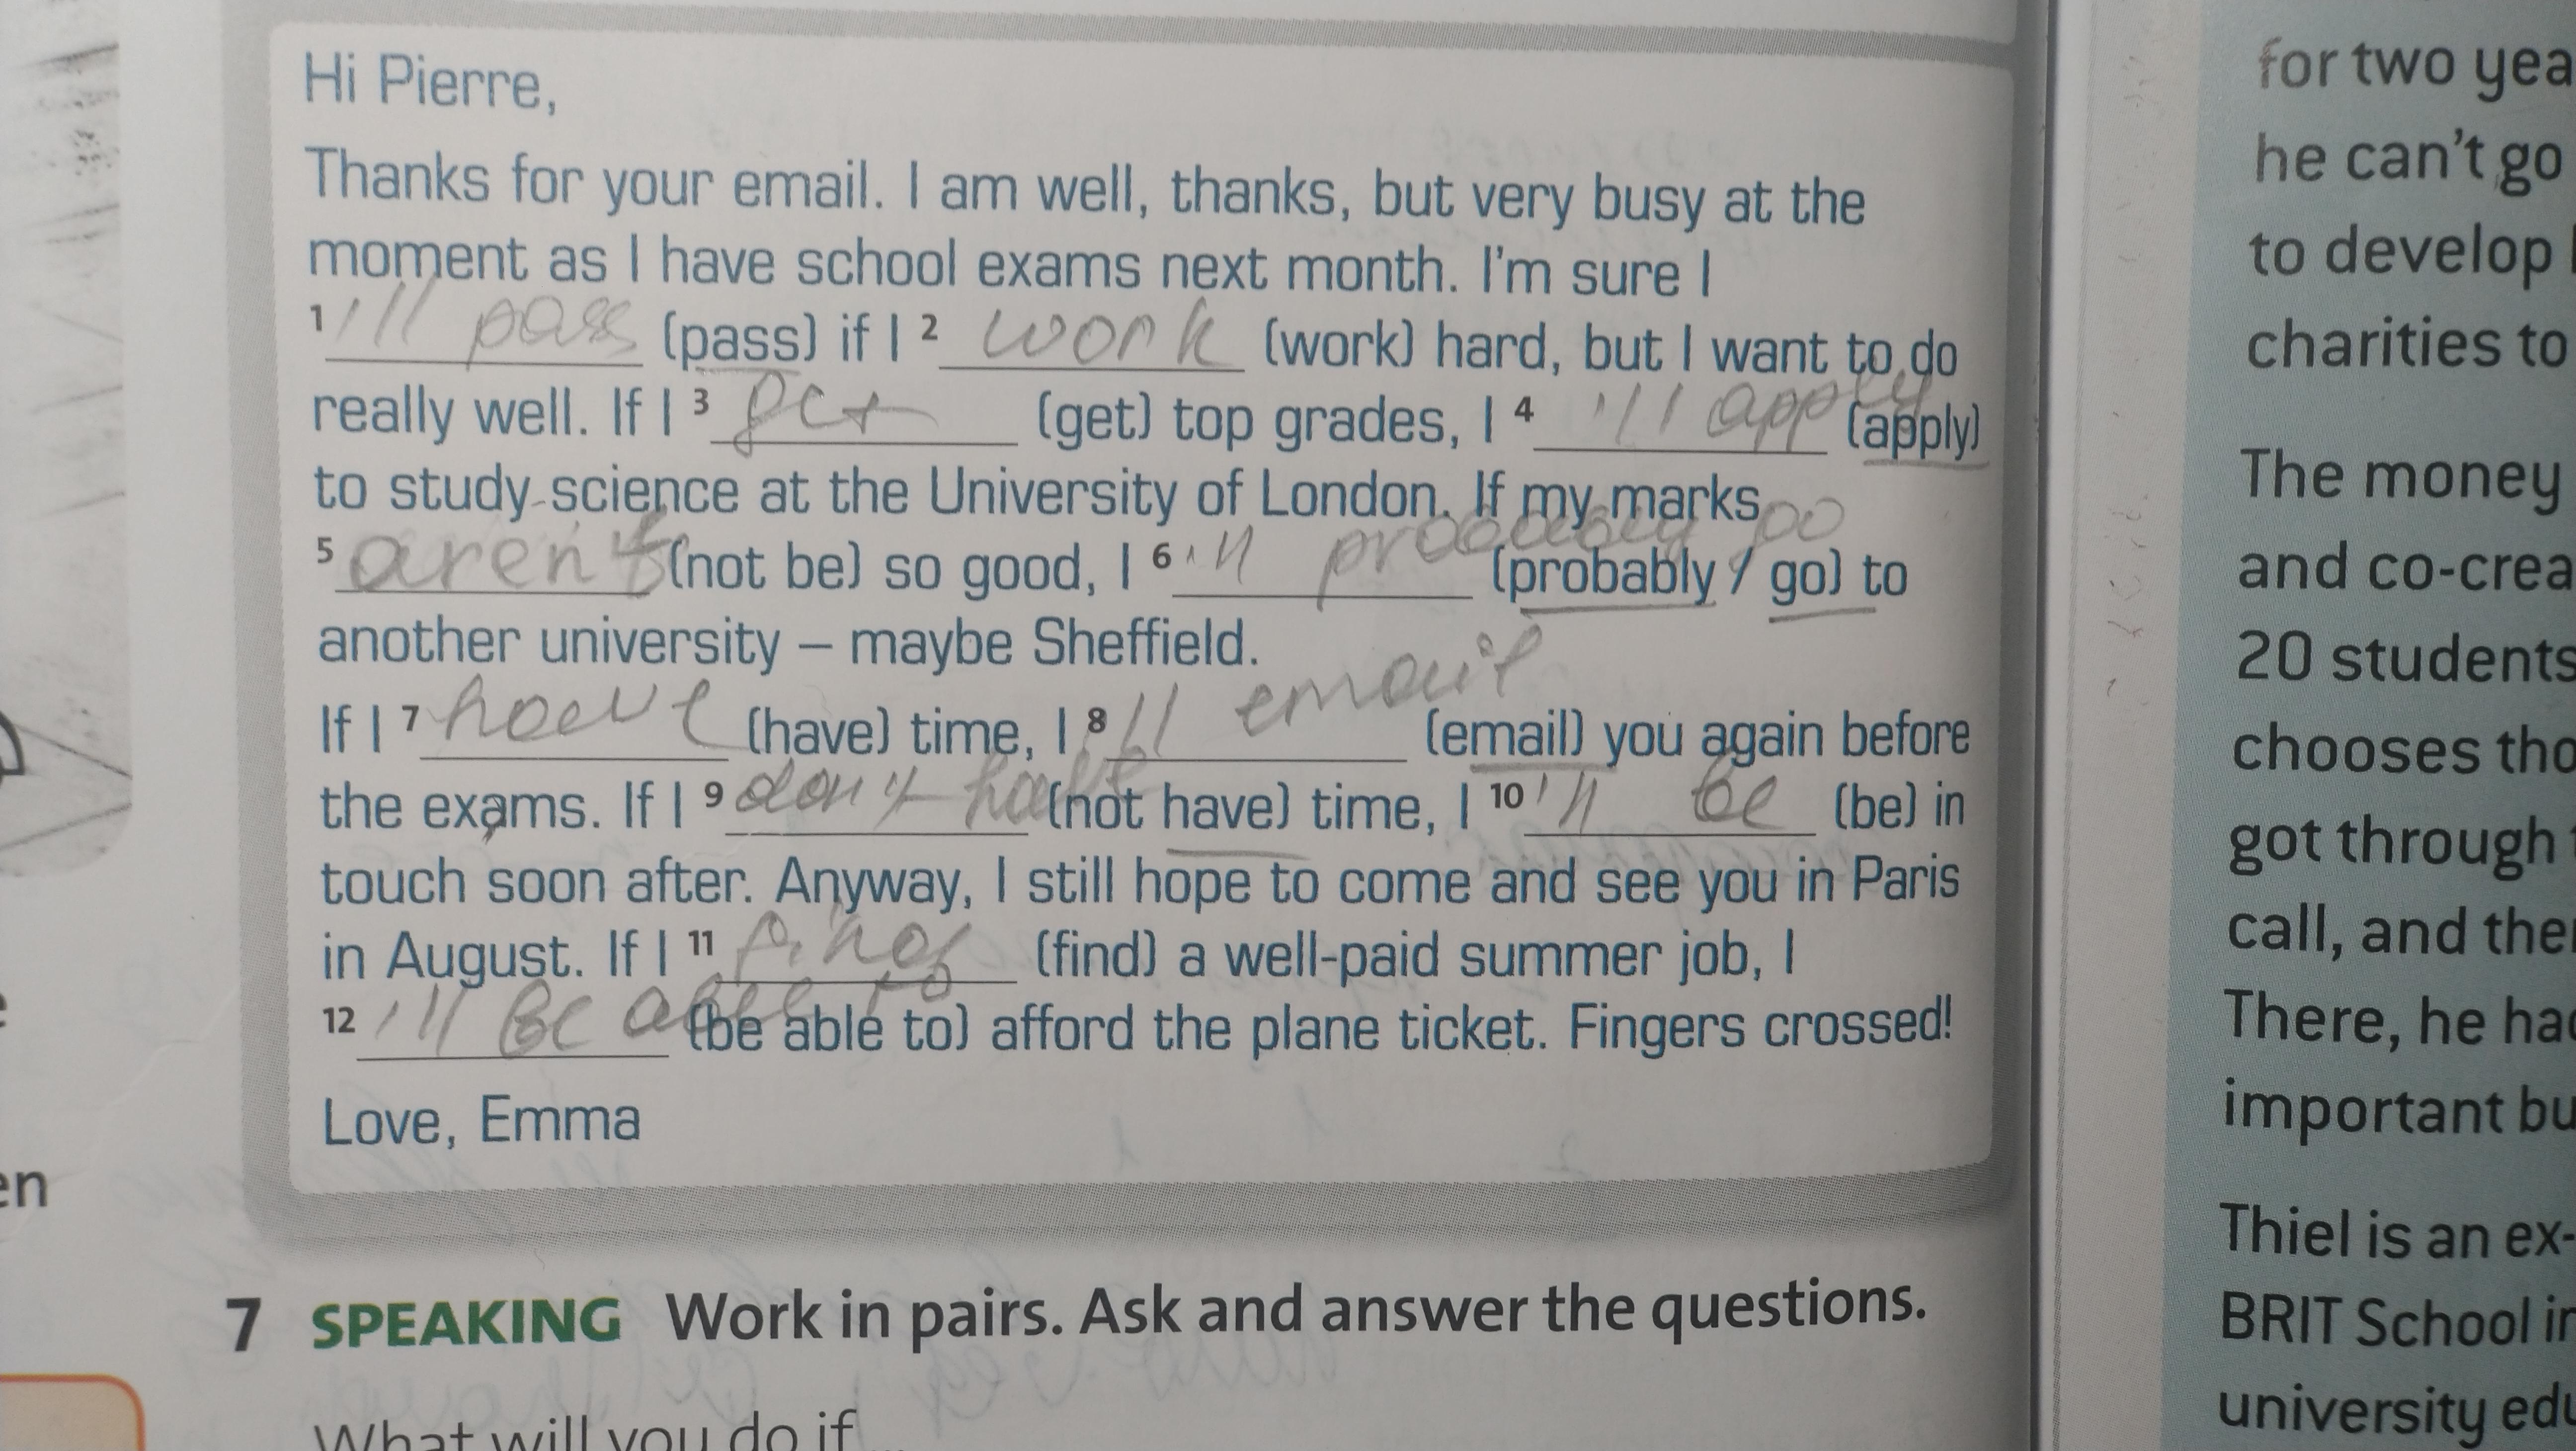 Hi Pierre,
Thanks for your email. I am well, thanks, but very busy at the
moment as I have school exams next month. I'm sure I
1 'll pass (pass) if I 2 work (work) hard, but I want to do
really well. If I 3 get (get) top grades, I 4 'll apply (apply)
to study science at the University of London. If my marks
5 aren't (not be) so good, I 6 'll probably go (probably / go) to
another university – maybe Sheffield.
If I 7 have (have) time, I 8 'll email (email) you again before
the exams. If I 9 don't have (not have) time, I 10 'll be (be) in
touch soon after. Anyway, I still hope to come and see you in Paris
in August. If I 11 find (find) a well-paid summer job, I
12 'll be able to (be able to) afford the plane ticket. Fingers crossed!
Love, Emma
7 SPEAKING Work in pairs. Ask and answer the questions.
What will you do if ...
en
for two yea
he can't go
to develop
charities to
The money
and co-crea
20 students
chooses tho
got through
call, and the
There, he ha
important bu
Thiel is an ex-
BRIT School in
university edu